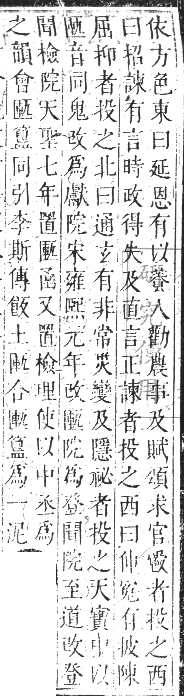 依方色東曰延恩有以養人勸農事及賦頌求官爵者投之西
曰招諫有言時政得失及直言正諫者投之西曰伸冤有披陳
屈抑者投之北曰通玄有非常災變及隱祕者投之天寶中以
匭音同鬼改爲獻院宋雍熙元年改匭院爲登聞院至道改登
聞檢院天聖七年置匭函又置檢理使以中丞爲
之韻會匭簋同引李斯傳飯土匭合匭簋爲一泥